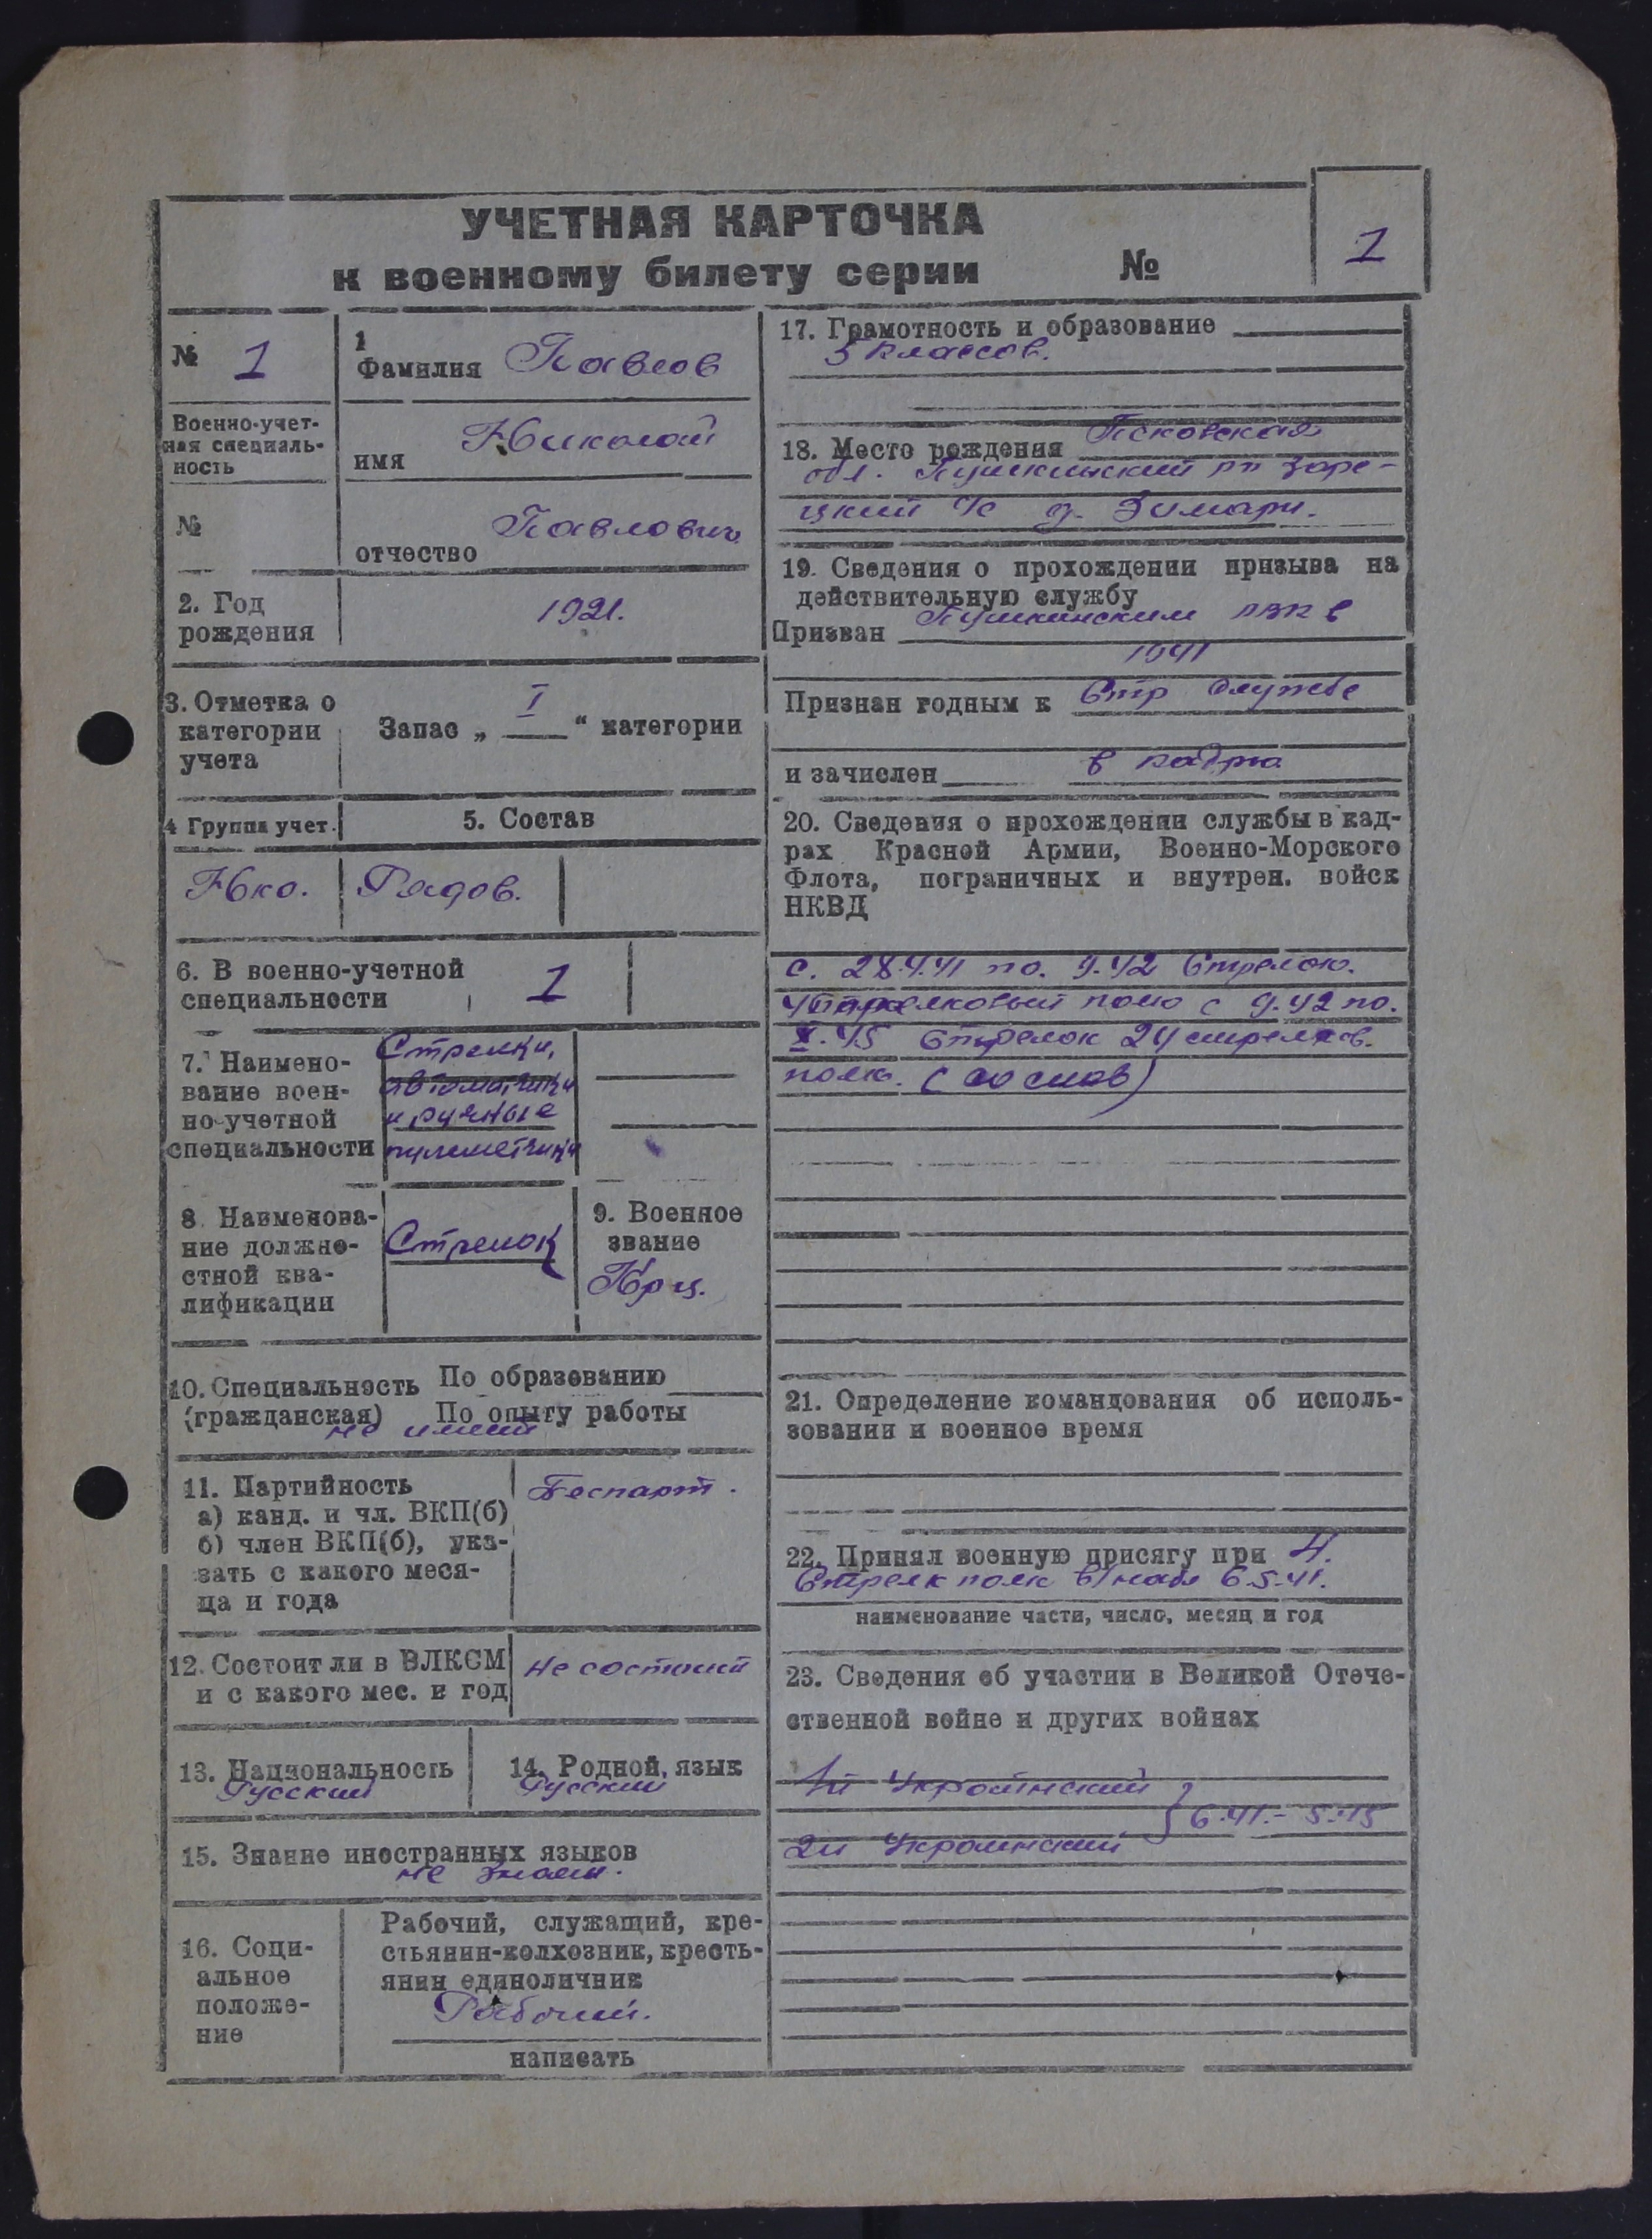 УЧЕТНАЯ КАРТОЧКА
к военному билету серии №
1
№ 1
Военно-учет-
ная специаль-
ность
№
1
Фамилия Павлов
имя Николай
отчество Павлович
2. Год
рождения
1921.
3. Отметка о
категории
учета
Запас „ I “ категории
4 Группа учет.
5. Состав
Нко.
Рядов.
6. В военно-учетной
специальности
1
7. Наимено-
вание воен-
но-учетной
специальности
Стрелки,
автоматчики
и ручные
пулеметчики
8. Наименова-
ние должно-
стной ква-
лификации
Стрелок
9. Военное
звание
Кр-ц.
10. Специальность
(гражданская)
По образованию
По опыту работы
не имеет
11. Партийность
а) канд. и чл. ВКП(б)
б) член ВКП(б), ука-
зать с какого меся-
ца и года
Беспарт.
12. Состоит ли в ВЛКСМ
и с какого мес. и год
не состоит
13. Национальность
Русский
14. Родной язык
Русский
15. Знание иностранных языков
не знает.
16. Соци-
альное
положе-
ние
Рабочий, служащий, кре-
стьянин-колхозник, кресть-
янин единоличник
Рабочий.
написать
17. Грамотность и образование
3 классов.
18. Место рождения Псковская
обл. Пушкинский рн Заре-
цкий с/с д. Зимари.
19. Сведения о прохождении призыва на
действительную службу
Призван Пушкинским РВК в
1941
Признан годным к Стр службе
и зачислен в кадры
20. Сведения о прохождении службы в кад-
рах Красной Армии, Военно-Морского
Флота, пограничных и внутрен. войск
НКВД
с. 28.4.41 по. 9.42 Стрелок.
4 стрелковый полк с 9.42 по.
X.45 Стрелок 24 стрелков.
полк.
21. Определение командования об исполь-
зовании и военное время
22. Принял военную присягу при 4.
Стрелк полк 6.5.41.
наименование части, число, месяц и год
23. Сведения об участии в Великой Отече-
ственной войне и других войнах
1й Украинский
6.41.- 5.45
2й Украинский